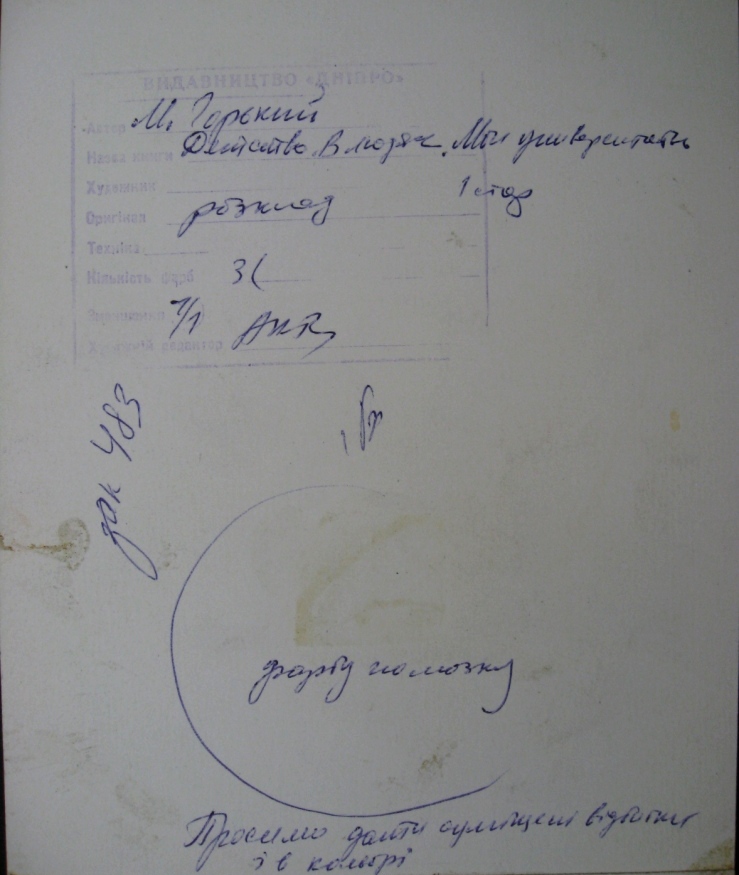 ВИДАВНИЦТВО «ДНІПРО»
Автор М. Горький
Назва книги Детство. В людях. Мои университеты
Художник 1 стор
Оригінал розклад
Техніка
Кількість фарб 3
7/1
Художній редактор
зак 483
фарбу
Просимо дати суміщені відбитки
і в кольорі